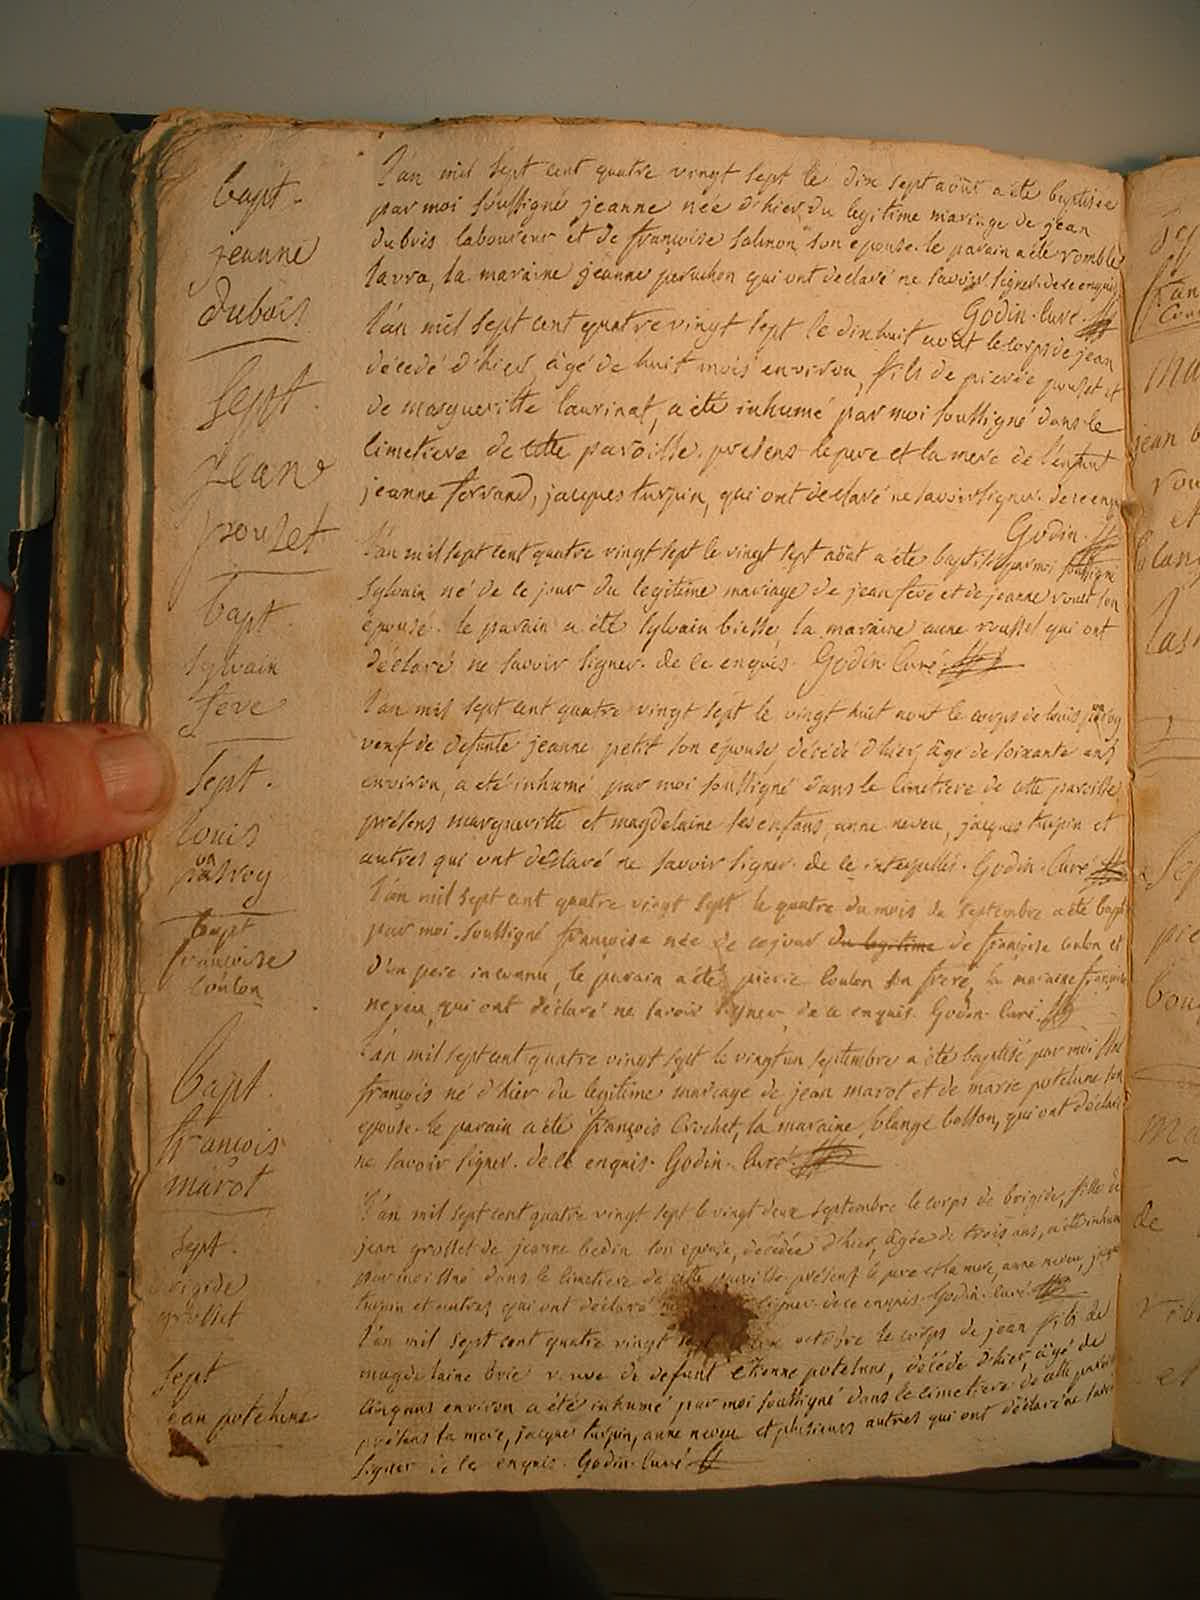 Bapt.
jeanne
Dubois
L'an mil sept cent quatre vingt sept le dix sept aoüt a été baptisée
par moi soussigné jeanne née d'hier du legitime mariage de jean
dubois laboureur et de françoise salmon son epouse. le parain a été
la maraine jeanne qui ont declaré ne savoir signer. de ce enquis
Godin. Curé.
Sept.
jean
pouzet
L'an mil sept cent quatre vingt sept le dix huit aout le corps de jean
décédé d'hier, âgé de huit mois environ, fils de pierre pouzet et
de margueritte laurinat, a été inhumé par moi soussigné dans le
Cimetiere de cette paroisse. présens le pere et la mere de l'enfant
jeanne ferrand, jacques turpin, qui ont declaré ne savoir signer. de ce enquis
Godin.
Bapt.
Sylvain
feve
L'an mil sept cent quatre vingt sept le vingt sept aoüt a été baptisé par moi soussigné
Sylvain né de ce jour du legitime mariage de jean feve et de jeanne son
epouse. le parain a été Sylvain biesse la maraine anne roussel qui ont
déclaré ne savoir signer. de ce enquis. Godin Curé
Sept.
louis
L'an mil sept cent quatre vingt sept le vingt huit aout le corps de louis
veuf de defunte jeanne petit son epouse, décédé d'hier, âgé de soixante ans
environ, a été inhumé par moi soussigné dans le Cimetiere de cette paroisse
présens margueritte et magdelaine ses enfans, anne neveu, jacques turpin et
autres qui ont déclaré ne savoir signer. de ce interpellés. Godin. Curé
bapt
françoise
Coulon
L'an mil sept cent quatre vingt sept le quatre du mois de septembre a été bapt
par moi soussigné françoise née de ce jour du legitime de françoise coulon et
d'un pere inconnu, le parain a été pierre Coulon son frere, la maraine françoise
neveu, qui ont déclaré ne savoir signer de ce enquis. Godin. Curé.
Bapt.
françois
marot
L'an mil sept cent quatre vingt sept le vingt un septembre a été baptisé par moi ssné
françois né d'hier du legitime mariage de jean marot et de marie potelune son
epouse. le parain a été françois Crochet, la maraine solange bolton, qui ont déclaré
ne savoir signer. de ce enquis. Godin. Curé.
Sept.
brigide
grollet
L'an mil sept cent quatre vingt sept le vingt deux septembre le corps de brigide, fille de
jean grollet de jeanne bedin son epouse, décédée d'hier, âgée de trois ans, a été inhumé
par moi ssné dans le Cimetiere de cette paroisse. présens le pere et la mere, anne neveu, jacque
turpin et autres, qui ont déclaré signer. de ce enquis. Godin. Curé
Sept
jean potelune
L'an mil sept cent quatre vingt sept octobre le corps de jean fils de
magdelaine brie veuve de defunt Etienne potelune, décédé d'hier, âgé de
Cinq ans environ a été inhumé par moi soussigné dans le Cimetiere de cette paroisse
présens la mere, jacques turpin, anne neveu et plusieurs autres qui ont déclaré ne savoir
signer de ce enquis. Godin. Curé